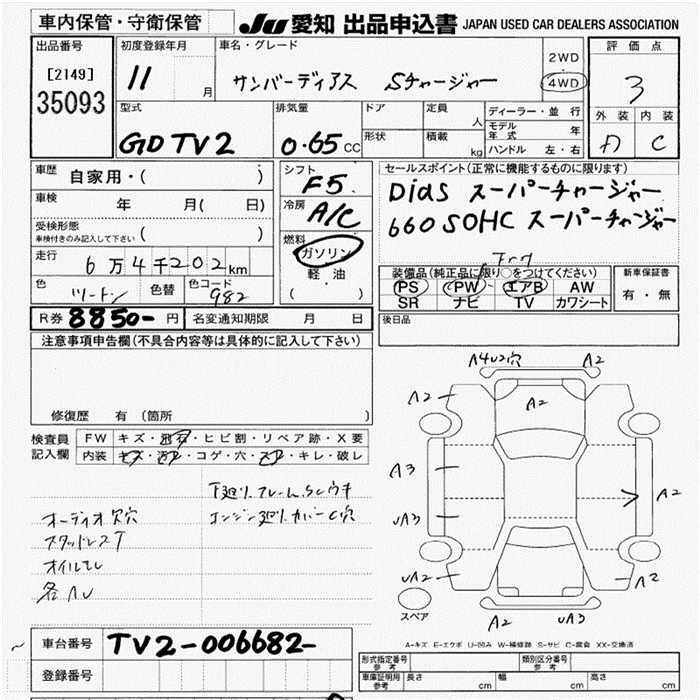 車内保管・守衛保管
JU 愛知 出品申込書 JAPAN USED CAR DEALERS ASSOCIATION
出品番号
[2149]
35093
初度登録年月
11 月
車名・グレード
サンバーディアス Sチャージャー
2WD
4WD
評価点
3
外装 内装
A C
型式
GD TV2
排気量
0.65 CC
ドア
形状
定員
人
積載
kg
ディーラー・並行
モデル年式 年
ハンドル 左・右
車歴
自家用・( )
車検
年 月( 日)
受検形態
車検付きのみ記入して下さい ( )
走行
6万4千202km
色
ツートン
色替
色コード
982
シフト
F5
冷房
A/C
燃料
ガソリン
軽油
( )
セールスポイント(正常に機能するものに限ります)
Dias スーパーチャージャー
660 SOHC スーパーチャージャー
装備品(純正品に限り○をつけてください)
PS PW エアB AW
SR ナビ TV カワシート
新車保証書
有・無
R券 8850- 円
名変通知期限 月 日
後日品
注意事項申告欄(不具合内容等は具体的に記入して下さい)
修復歴 有(箇所 )
検査員
記入欄
FW キズ・飛石・ヒビ割・リペア跡・X要
内装 キズ・汚レ・コゲ・穴・スレ・キレ・破レ
下廻り、フレーム、SCウキ
エンジン廻り、カバーC穴
オーディオ欠穴
スタッドレスT
オイルモレ
各AU
A4U2穴 A2
A2
A2
A3
UA3
UA2
A2
A2
A2 UA3
スペア
A-キズ E-エクボ U-凹み W-補修跡 S-サビ C-腐食 XX-交換済
車台番号 TV2-006682-
登録番号
形式指定番号 参考
類別区分番号 参考
車庫証明用 参考 長さ cm 幅 cm 高さ cm